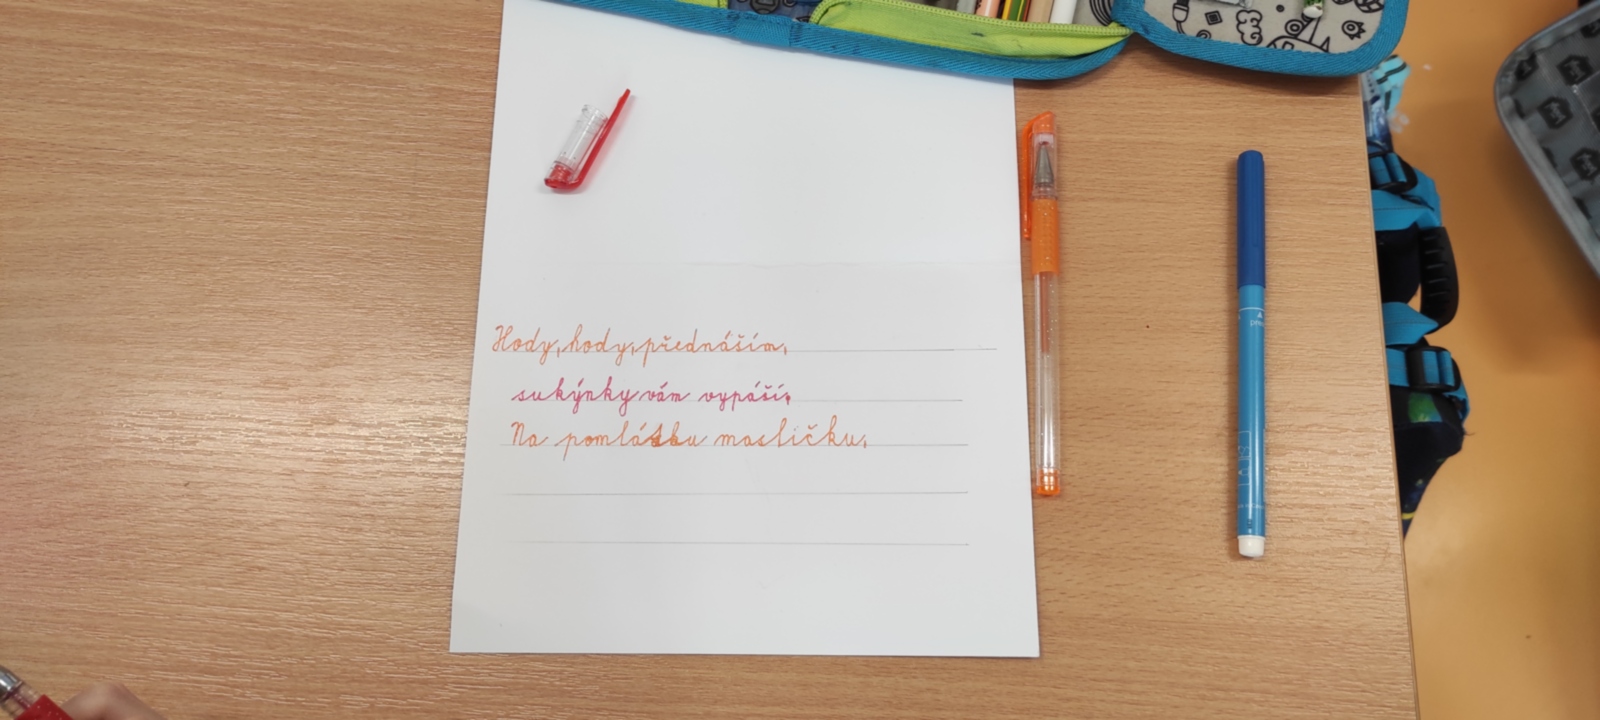 Hody, hody, přednáším,
sukýnky vám vypáší,
Na pomlásku mosličku,